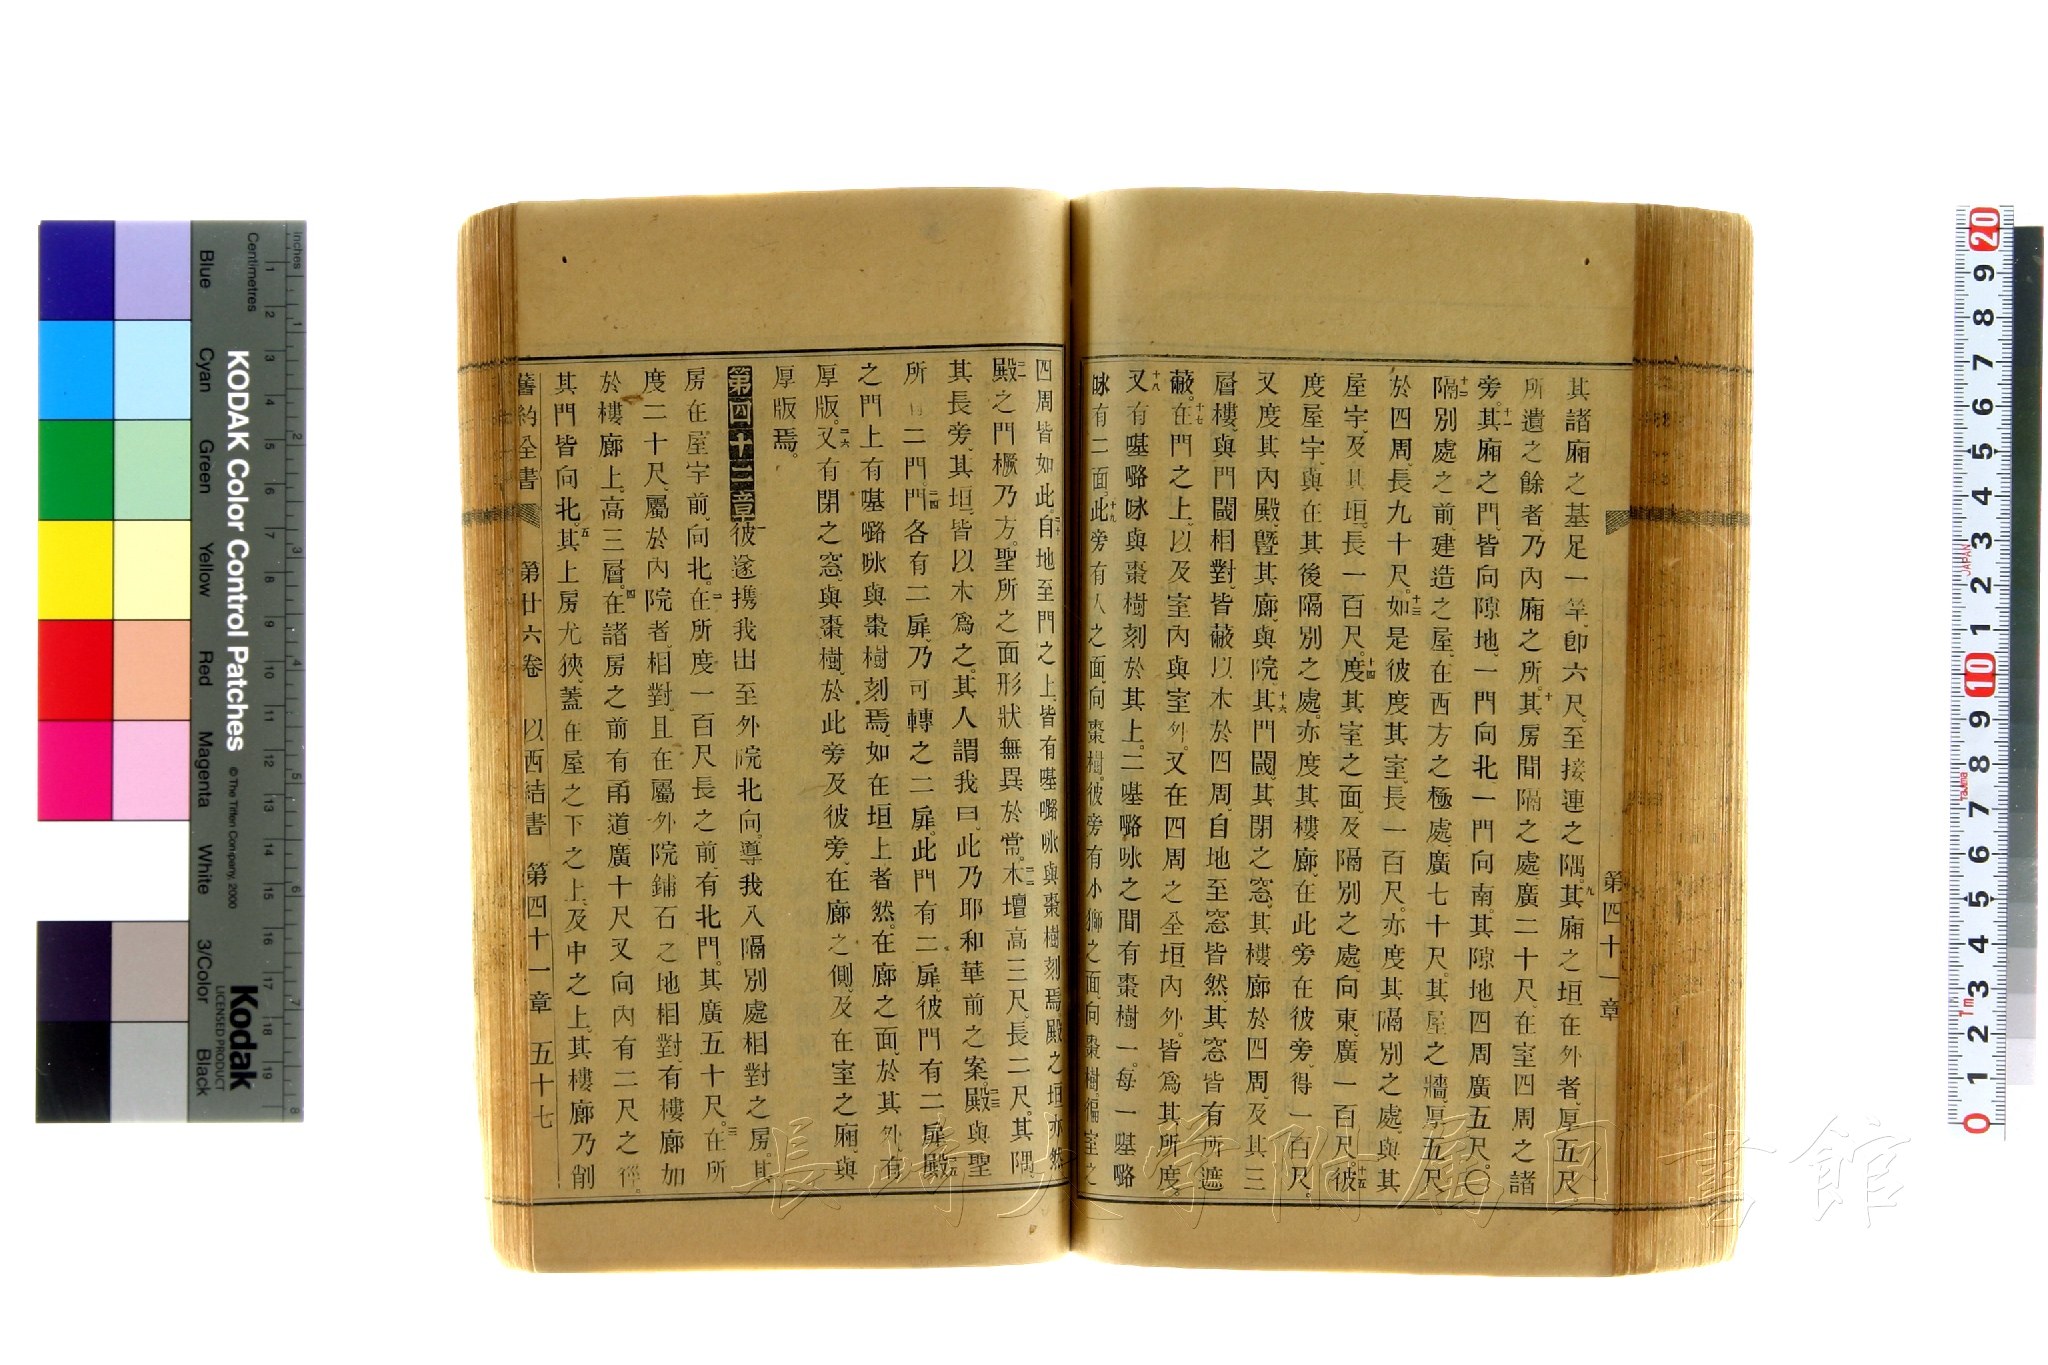 第四十一章
其諸廂之基足一竿、卽六尺、至接連之隅。九其廂之垣在外者、厚五尺
所遺之餘者乃內廂之所。十其房間隔之處、廣二十尺、在室四周之諸
旁。十一其廂之門、皆向隙地、一門向北、一門向南。其隙地四周廣五尺。〇
十二隔別處之前建造之屋、在西方之極處、廣七十尺。其屋之牆、厚五尺
於四周、長九十尺。十三如是彼度其室、長一百尺。亦度其隔別之處、與其
屋宇、及其垣、長一百尺。十四度其室之面、及隔別之處、向東、廣一百尺。十五彼
度屋宇、與在其後隔別之處。亦度其樓廊、在此旁在彼旁、得一百尺。
又度其內殿、曁其廊、與院。十六其門閾、其閉之窓、其樓廊於四周、及其三
層樓、與門閾相對、皆蔽以木於四周、自地至窓皆然、其窓皆有所遮
蔽。十七在門之上、以及室內與室外、又在四周之全垣內外、皆爲其所度。
十八又有𠼻嚕咏與棗樹刻於其上。二𠼻嚕咏之間有棗樹一。每一𠼻嚕
咏有二面。十九此旁有人之面、向棗樹。彼旁有小獅之面、向棗樹。徧室之
四周皆如此。二十自地至門之上、皆有𠼻嚕咏與棗樹刻焉、殿之垣亦然
二一殿之門橛乃方。聖所之面形狀無異於常。二二木壇高三尺、長二尺。其隅、
其長旁、其垣、皆以木爲之。其人謂我曰、此乃耶和華前之案。二三殿與聖
所有二門。二四門各有二扉、乃可轉之二扉。此門有二扉、彼門有二扉。二五殿
之門上有𠼻嚕咏與棗樹刻焉、如在垣上者然。在廊之面、於其外、有
厚版。二六又有閉之窓、與棗樹、於此旁及彼旁、在廊之側、及在室之廂、與
厚版焉。
第四十二章一彼遂攜我出至外院北向、導我入隔別處相對之房。其
房在屋宇前、向北。二在所度一百尺長之前、有北門。其廣五十尺。三在所
度二十尺、屬於內院者、相對。且在屬外院鋪石之地相對、有樓廊加
於樓廊上、高三層。四在諸房之前有甬道、廣十尺、又向內有二尺之徑。
其門皆向北。五其上房尤狹、蓋在屋之下之上、及中之上、其樓廊乃削
舊約全書 第廿六卷 以西結書 第四十一章 五十七
長崎大学附属図書館
KODAK Color Control Patches
© The Tiffen Company, 2000
Kodak
LICENSED PRODUCT
inches
Centimetres
Blue
Cyan
Green
Yellow
Red
Magenta
White
3/Color
Black